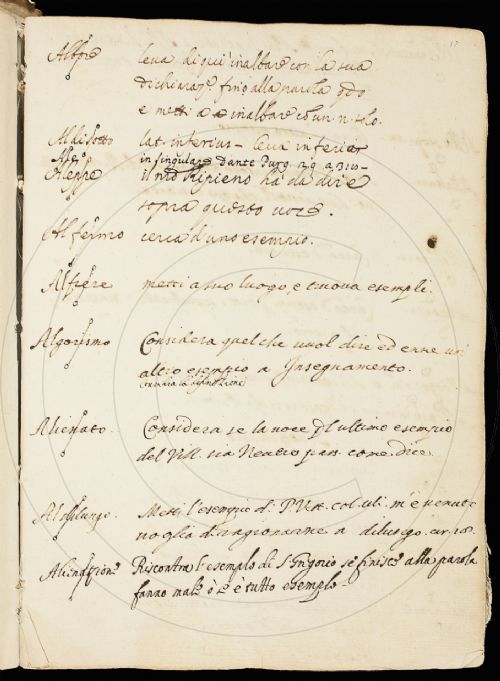 17
leva di qui inalbare con la sua
dichiaraz.e fino alla parola
e metti a inalbare con un n. solo.
Al disotto lat. inferius - leva inferior
in singulare Dante Purg. 29. a 310 -
Aleppe il nro Ripieno ha da dire
sopra questo voce.
Al fermo cerca d'uno esempio.
Alfiere metti a suo luogo, e truova esempli.
Algorismo Considera quel che vuol dire ed enne un
altro esempio a Insegnamento.
Alienato. Considera se la voce ultimo esempio
del Vill. sia Neutro pass. come dice.
Al lungo. Metti l'esempio di col. m'è venuta
voglia di ragionarne a dilungo
Alienazione Riscontra l'esemplo di S. Grigorio se finisce alla parola
fanno male ò è tutto esemplo -